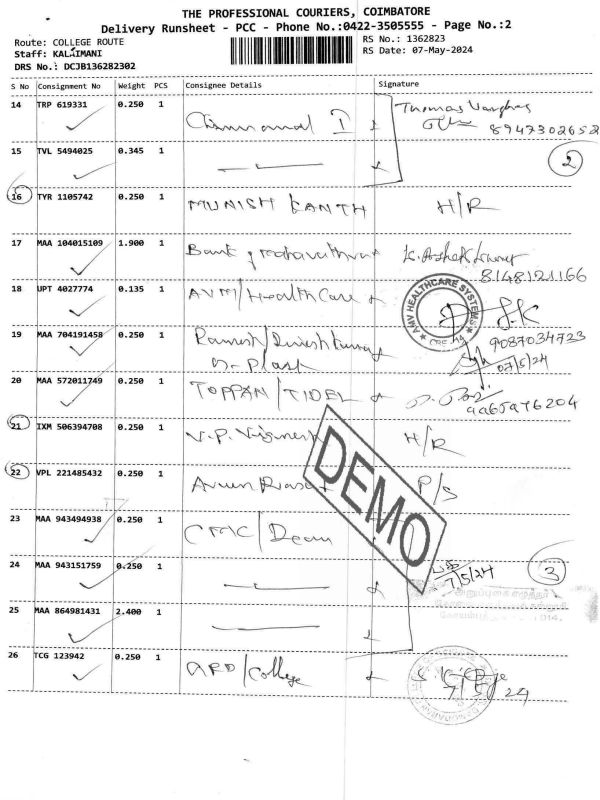 THE PROFESSIONAL COURIERS, COIMBATORE
Delivery Runsheet - PCC - Phone No.:0422-3505555 - Page No.:2
Route: COLLEGE ROUTE
Staff: KALAIMANI
DRS No.: DCJB136282302
RS No.: 1362823
RS Date: 07-May-2024
S No Consignment No Weight PCS Consignee Details Signature
14 TRP 619331 0.250 1 I Thomas
8947302652
15 TVL 5494025 0.345 1 2
16 TYR 1105742 0.250 1 MUNISH KANTH H/R
17 MAA 104015109 1.900 1 Bank
8148121166
18 UPT 4027774 0.135 1 AVM/HealthCare
AMV HEALTHCARE SYSTEMS
CBE
19 MAA 704191458 0.250 1 Ramesh/Dineshkumar 9087034723
07/5/24
20 MAA 572011749 0.250 1 TOPPAN/TIDEL
21 IXM 506394708 0.250 1 V.P. Vignesh H/R
22 VPL 221485432 0.250 1 Arun Prasad P/S
DEMO
23 MAA 943494938 0.250 1 CMC/Dean
24 MAA 943151759 0.250 1 7/5/24 3
25 MAA 864981431 2.400 1
26 TCG 123942 0.250 1 ARD/College
7/5/24